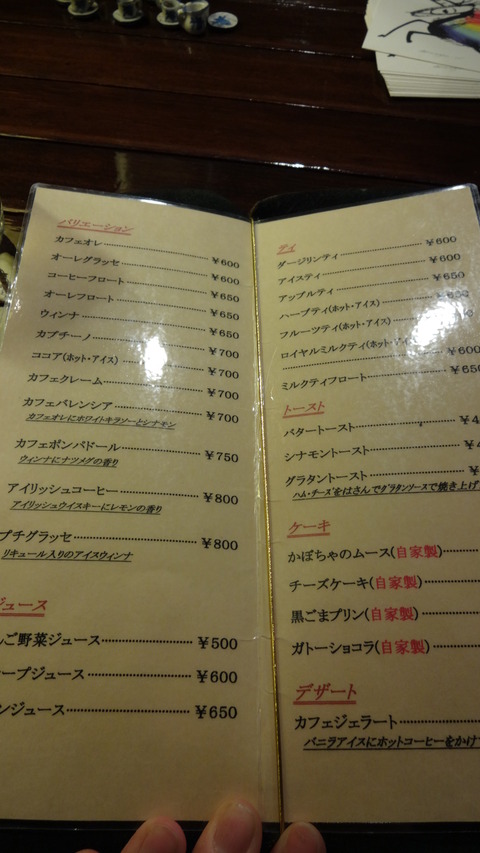 バリエーション
カフェオレ ¥600
オーレグラッセ ¥600
コーヒーフロート ¥650
オーレフロート ¥650
ウィンナ ¥650
カプチーノ ¥700
ココア(ホット・アイス) ¥700
カフェクレーム ¥700
カフェバレンシア ¥700
カフェオレにホワイトキュラソーとシナモン
カフェポンパドール ¥750
ウィンナにナツメグの香り
アイリッシュコーヒー ¥800
アイリッシュウイスキーにレモンの香り
プチグラッセ ¥800
リキュール入りのアイスウィンナ
ジュース
んご野菜ジュース ¥500
ープジュース ¥600
ンジュース ¥650
ティ
ダージリンティ ¥600
アイスティ ¥600
アップルティ ¥650
ハーブティ(ホット・アイス)
フルーツティ(ホット・アイス)
ロイヤルミルクティ(ホット・アイス)
¥600
ミルクティフロート ¥650
トースト
バタートースト ¥4
シナモントースト ¥4
グラタントースト ¥
ハム・チーズをはさんでグラタンソースで焼き上げ
ケーキ
かぼちゃのムース(自家製)
チーズケーキ(自家製)
黒ごまプリン(自家製)
ガトーショコラ(自家製)
デザート
カフェジェラート
バニラアイスにホットコーヒーをかけ